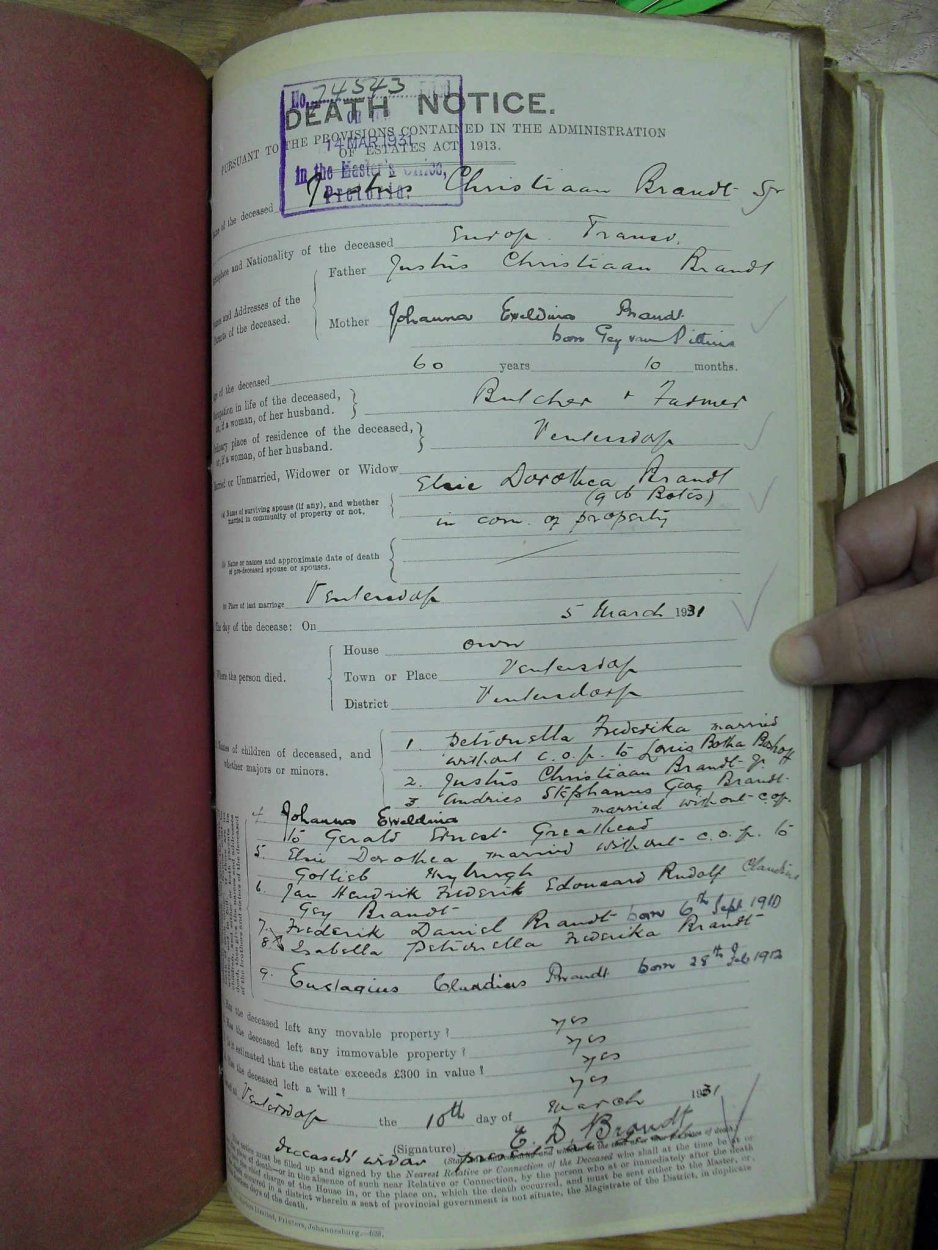 No. 74543
DEATH NOTICE.
14 MAR 1931
PURSUANT TO THE PROVISIONS CONTAINED IN THE ADMINISTRATION
OF ESTATES ACT, 1913.
in the Master's Office,
Pretoria.
of the deceased Justus Christiaan Brandt Sr
and Nationality of the deceased Europ. Transv.
and Addresses of the
of the deceased.
Father Justus Christiaan Brandt
Mother Johanna Eveldina Brandt
born Gey van Pittius
of the deceased 60 years 10 months.
in life of the deceased,
or, if a woman, of her husband. Butcher & Farmer
place of residence of the deceased,
or, if a woman, of her husband. Ventersdorp
or Unmarried, Widower or Widow
Elsie Dorothea Brandt
(a) Name of surviving spouse (if any), and whether
married in community of property or not.
(geb Botes)
in com. of property
(b) Name or names and approximate date of death
of pre-deceased spouse or spouses.
(c) Place of last marriage Ventersdorp
The day of the decease: On 5 March 1931
Where the person died.
House own
Town or Place Ventersdorp
District Ventersdorp
Names of children of deceased, and
whether majors or minors.
1. Petronella Frederika married
without c.o.p. to Louis Botha Bishop
2. Justus Christiaan Brandt jr.
3 Andries Stephanus Gey Brandt
4. Johanna Eveldina married without c.o.p.
to Gerald Ernest Greathead
5. Elsie Dorothea married without c.o.p. to
Gotlieb Myburgh
6. Jan Hendrik Frederik Edouard Rudolf Claudius
Gey Brandt
7. Frederik Daniel Brandt born 6th Sept 1910
8. Isabella Petronella Frederika Brandt
9. Eustagius Claudius Brandt born 28th Feb 1913
Has the deceased left any movable property? yes
Has the deceased left any immovable property? yes
Is it estimated that the estate exceeds £300 in value? yes
Has the deceased left a will? yes
Dated at Ventersdorp the 10th day of March 1931
(Signature) E. D. Brandt
deceased's widow
must be filled up and signed by the Nearest Relative or Connection of the Deceased who shall at the time be at or
of death—or in the absence of such near Relative or Connection, by the person who at or immediately after the death
charge of the House in, or the place on, which the death occurred, and must be sent either to the Master, or,
occurred in a district wherein a seat of provincial government is not situate, the Magistrate of the District, in duplicate
days of the death.
Limited, Printers, Johannesburg.—